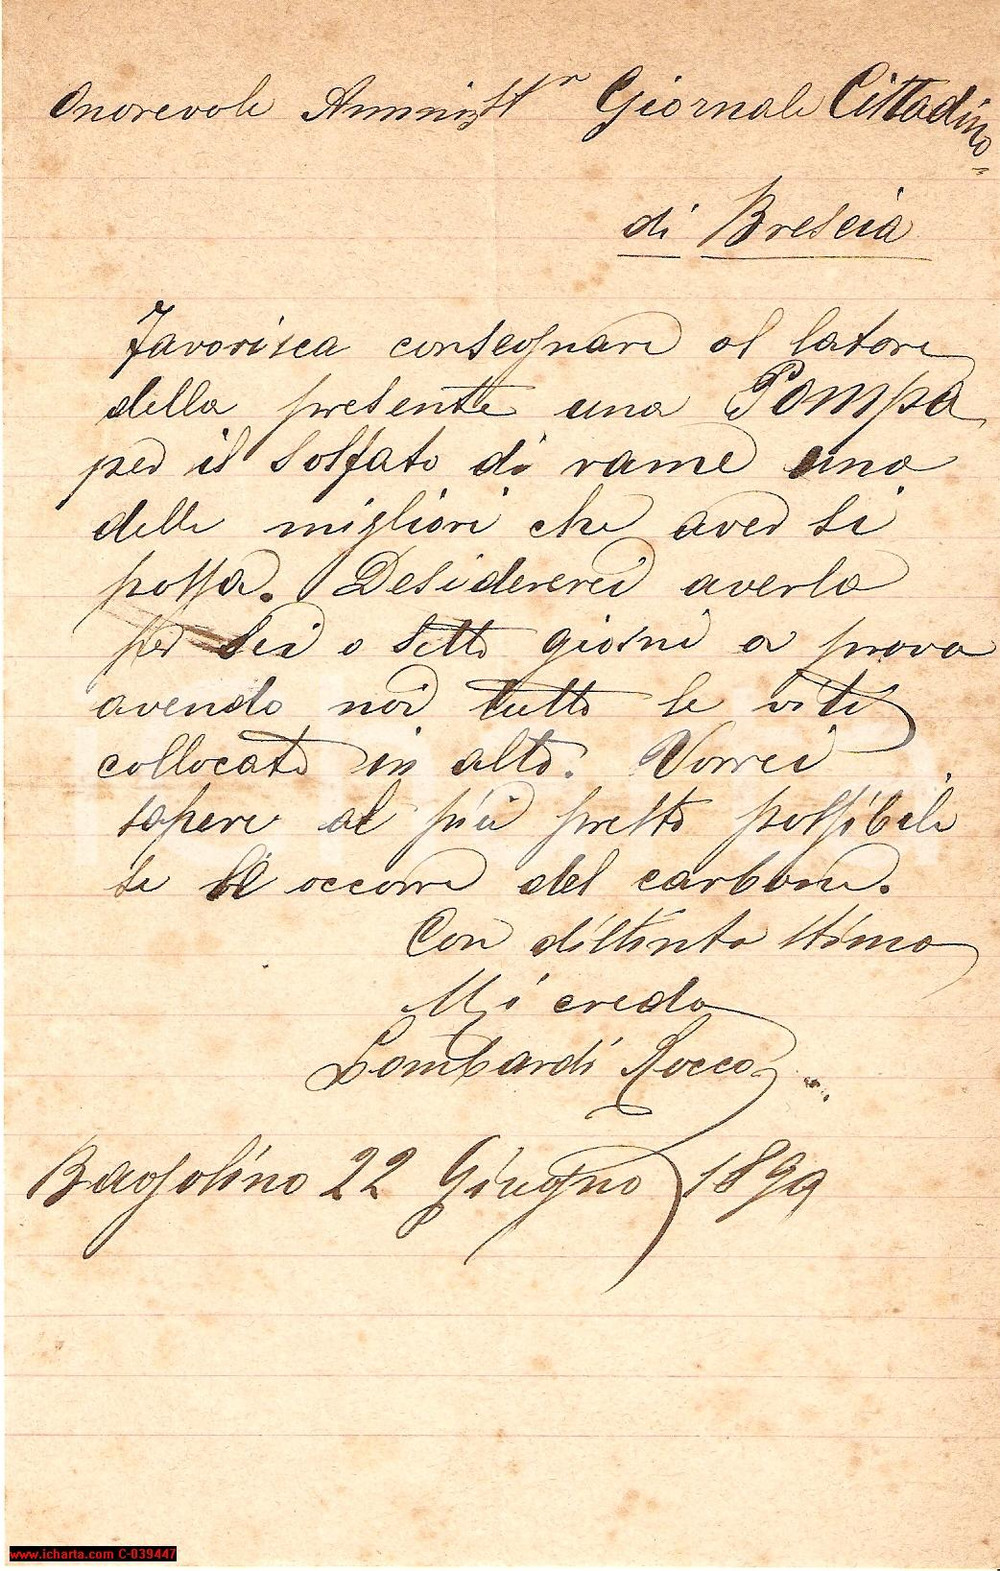 Onorevole Amminist.r Giornale Cittadino
di Brescia
Favorisca consegnare al latore
della presente una Pompa
per il solfato di rame una
delle migliori che aver si
possa. Desidererei averla
per sei o sette giorni a prova
avendo noi tutte le viti
collocate in alto. Vorrei
sapere al più presto possibile
se le occorre del carbone.
Con distinta stima
Mi creda
Lombardi Rocco
Bagolino 22 Giugno 1899
www.icharta.com C-039447